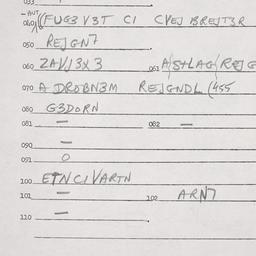 033
040 (FUG3 V3T CI CVEJ BREJT3R
050 REJGN7
060 2AVJ3X3 061 A/S+LAG/REJG
070 A DROBN3M REJGNDL (455
080 G3DORN
081 — 082 —
090 —
091 O
100 ETNCIVARTN
101 — 102 ARN7
110 —